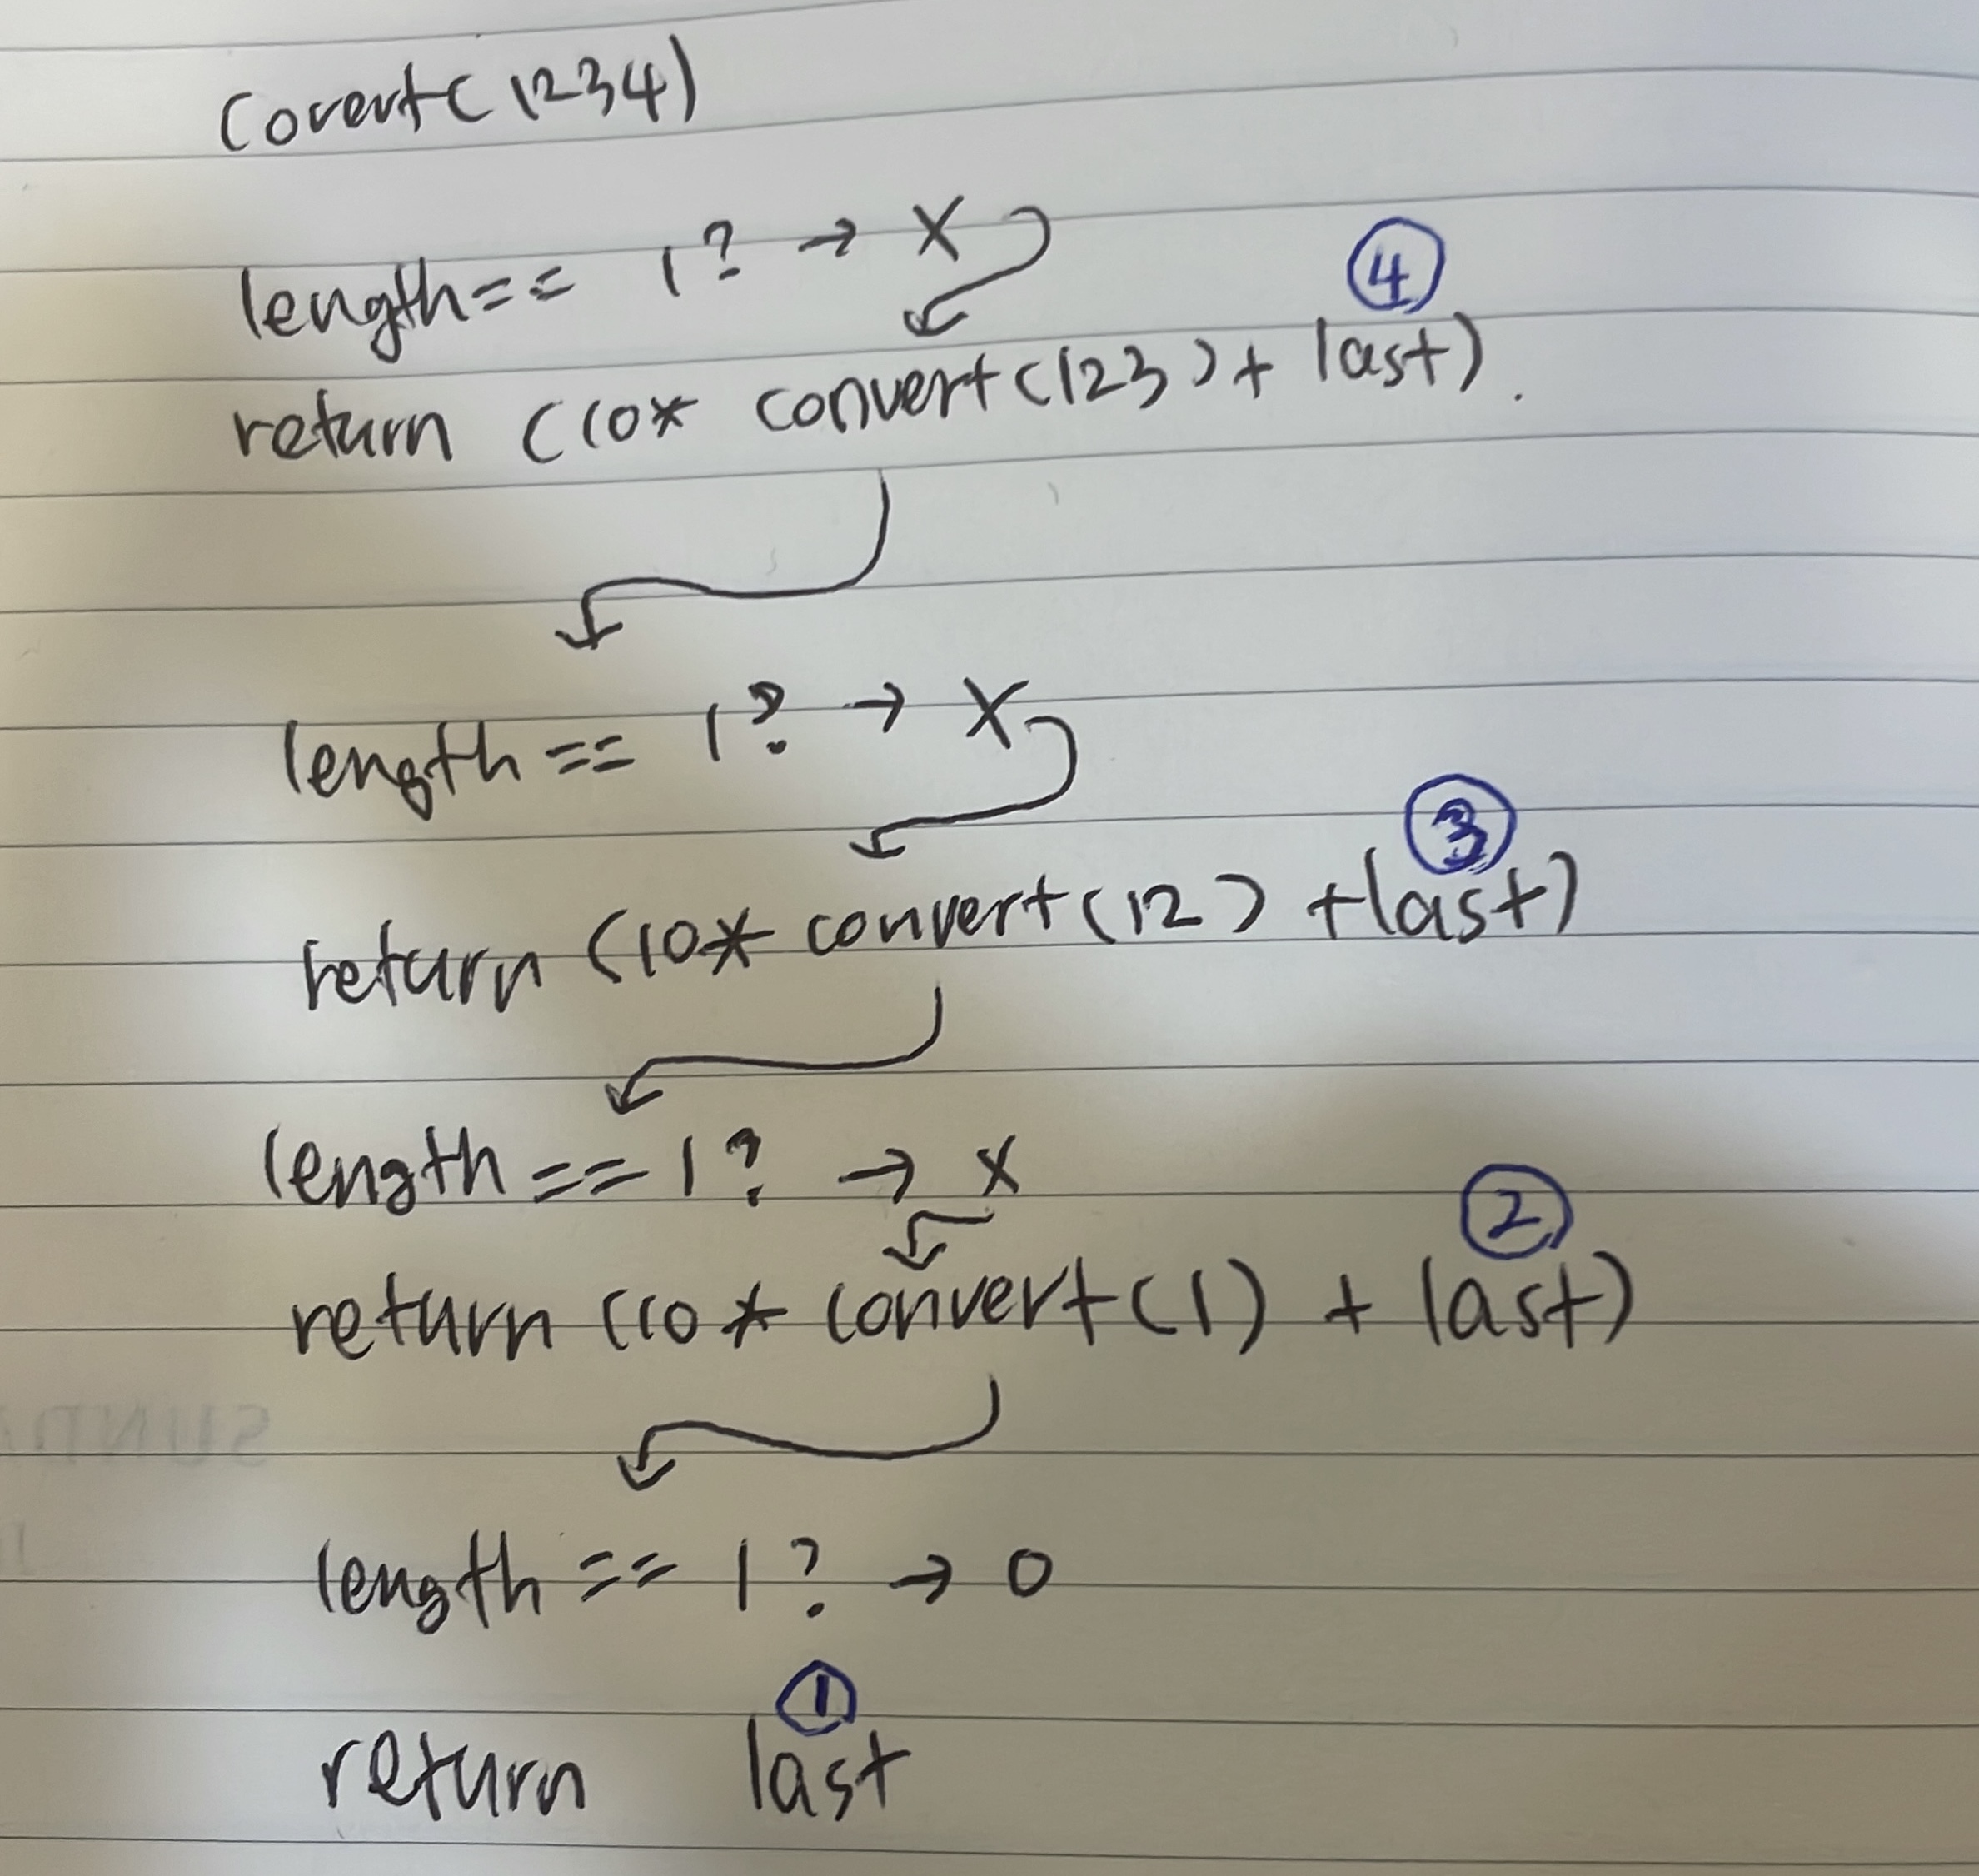 Covert(1234)
length == 1? → X
④
return (10* convert(123) + last).
length == 1? → X
③
return (10* convert(12) + last)
length == 1? → X
②
return (10 * convert(1) + last)
length == 1? → O
①
return last
SUNDA